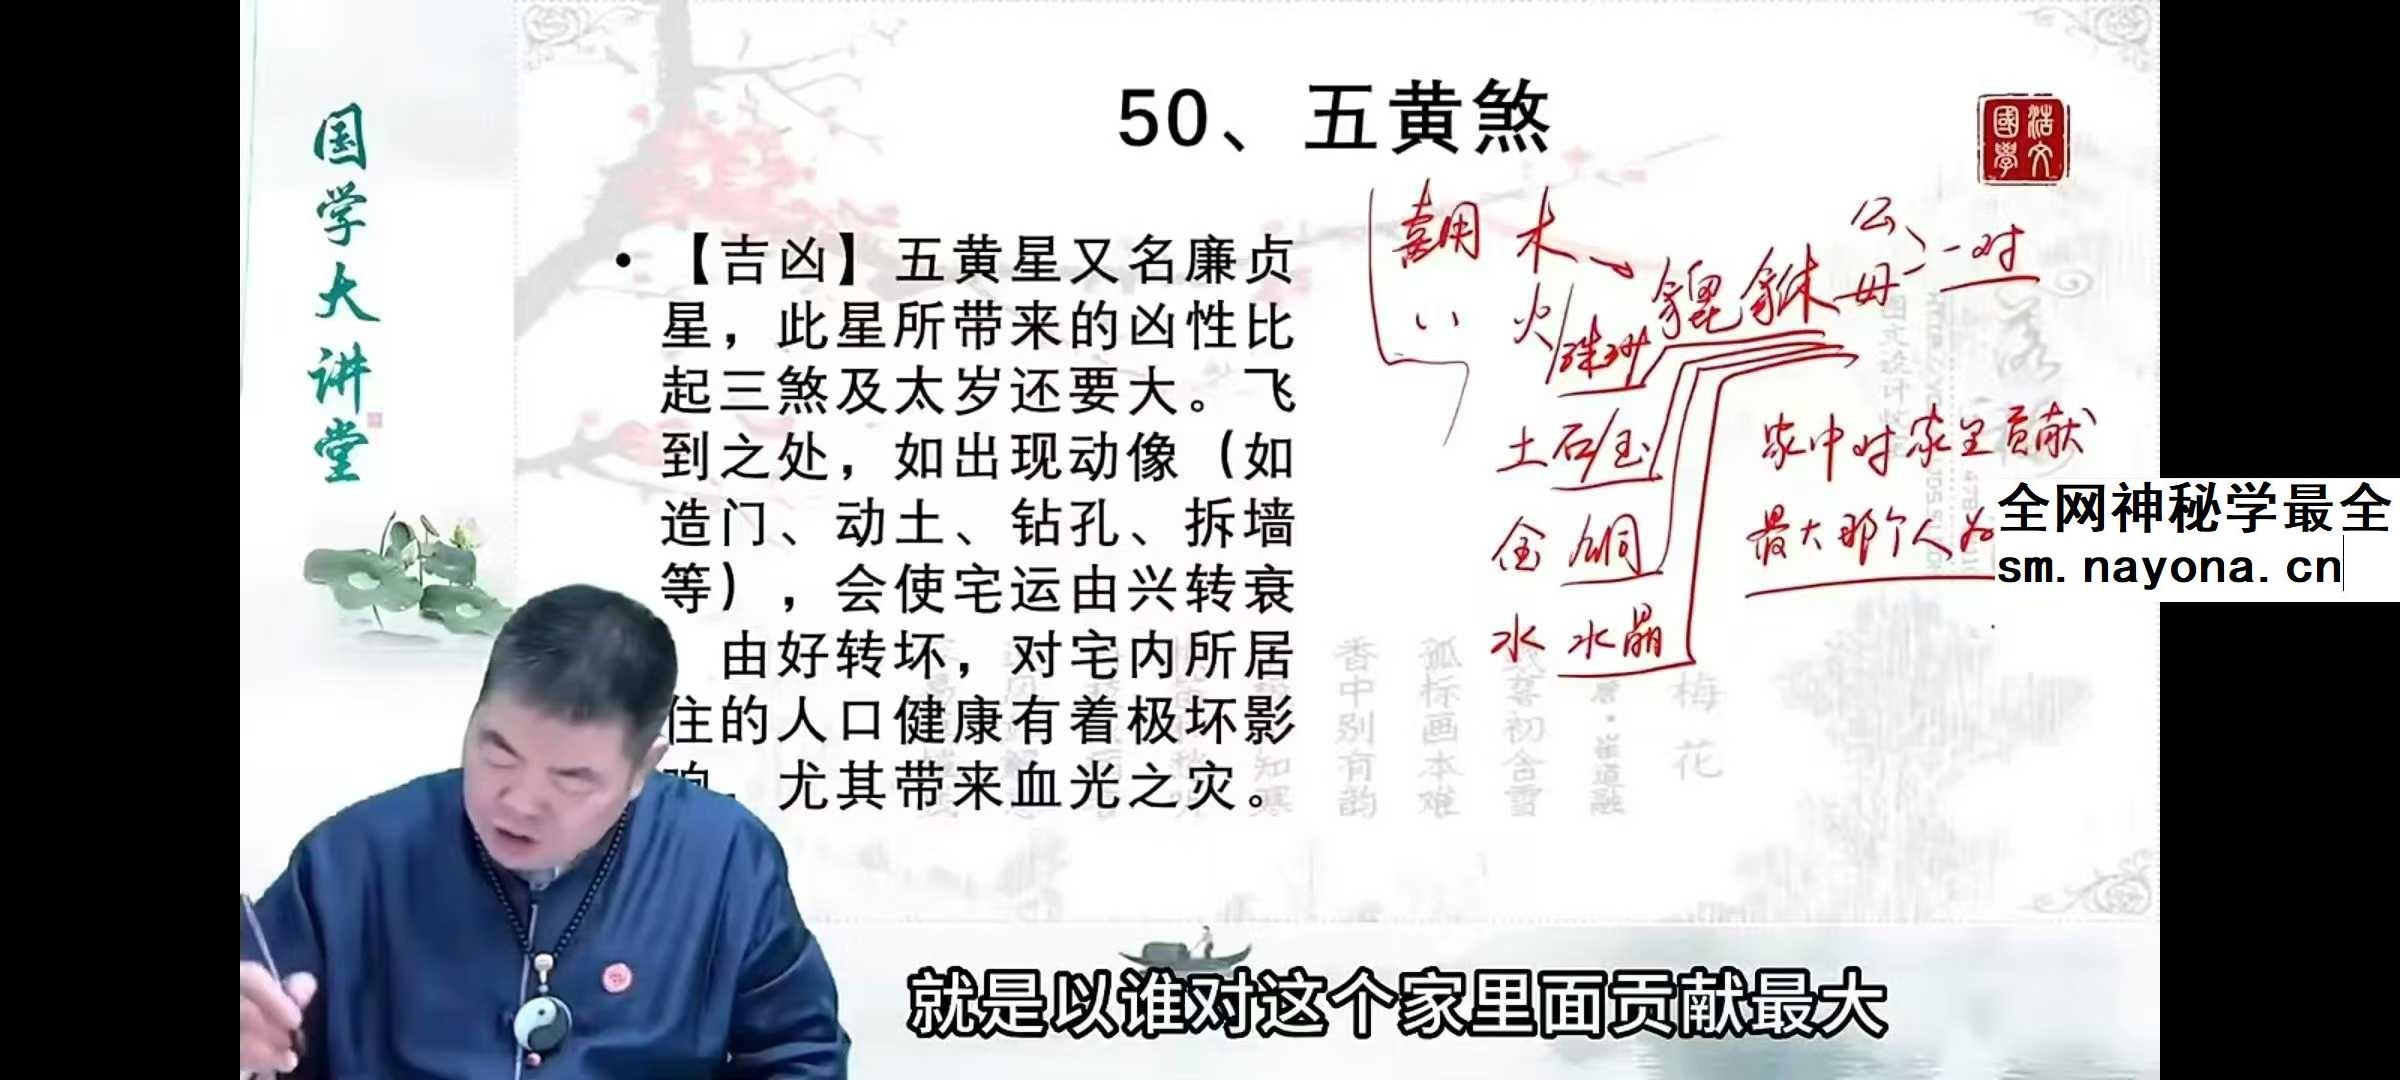 国学大讲堂
50、五黄煞
國學
浩文
【吉凶】五黄星又名廉贞
星，此星所带来的凶性比
起三煞及太岁还要大。飞
到之处，如出现动像（如
造门、动土、钻孔、拆墙
等），会使宅运由兴转衰
由好转坏，对宅内所居
住的人口健康有着极坏影
响，尤其带来血光之灾。
喜用 木 貔貅 公 母 一对
火
土 石/玉
金 铜
水 水晶
家中对家里贡献
最大那个人为
全网神秘学最全
sm.nayona.cn
梅花
香中别有韵
孤标画本难
就是以谁对这个家里面贡献最大